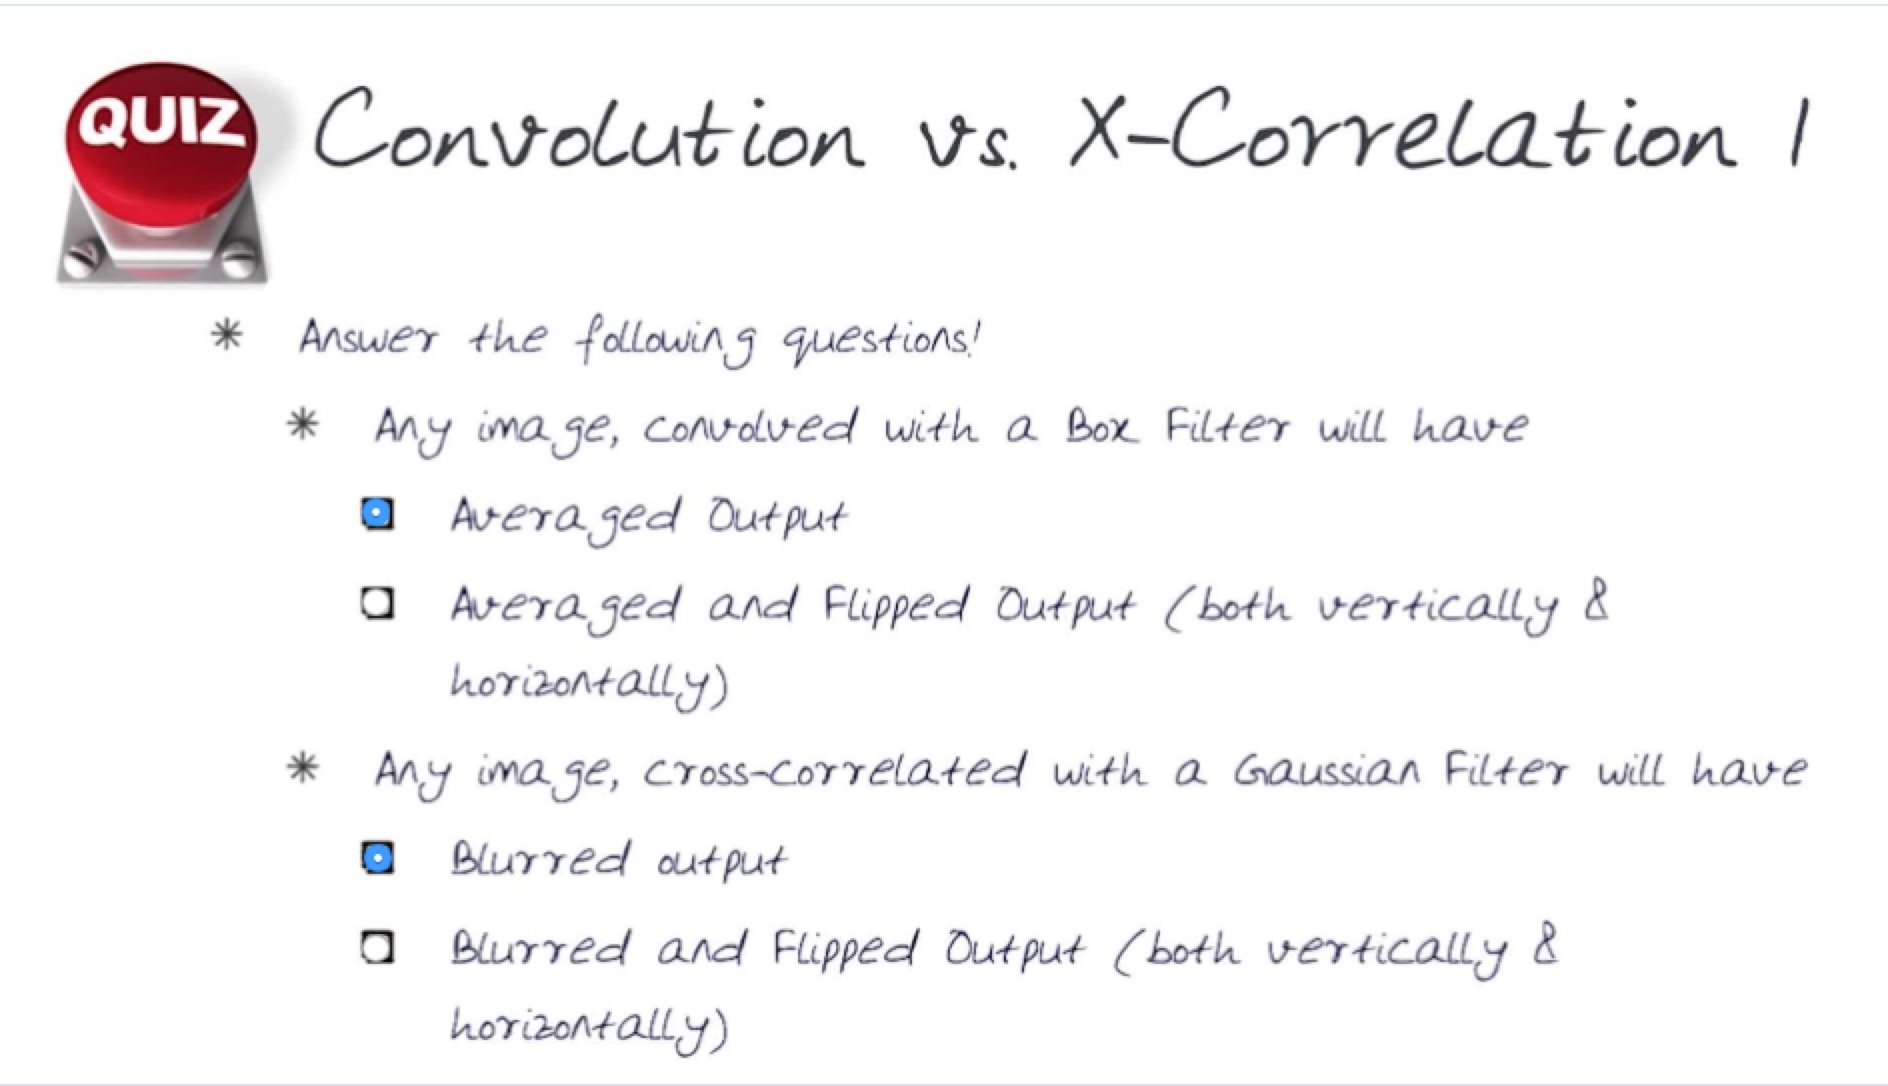 QUIZ
Convolution vs. X-Correlation 1
* Answer the following questions!
* Any image, convolved with a Box Filter will have
Averaged Output
Averaged and Flipped Output (both vertically &
horizontally)
* Any image, cross-correlated with a Gaussian Filter will have
Blurred output
Blurred and Flipped Output (both vertically &
horizontally)